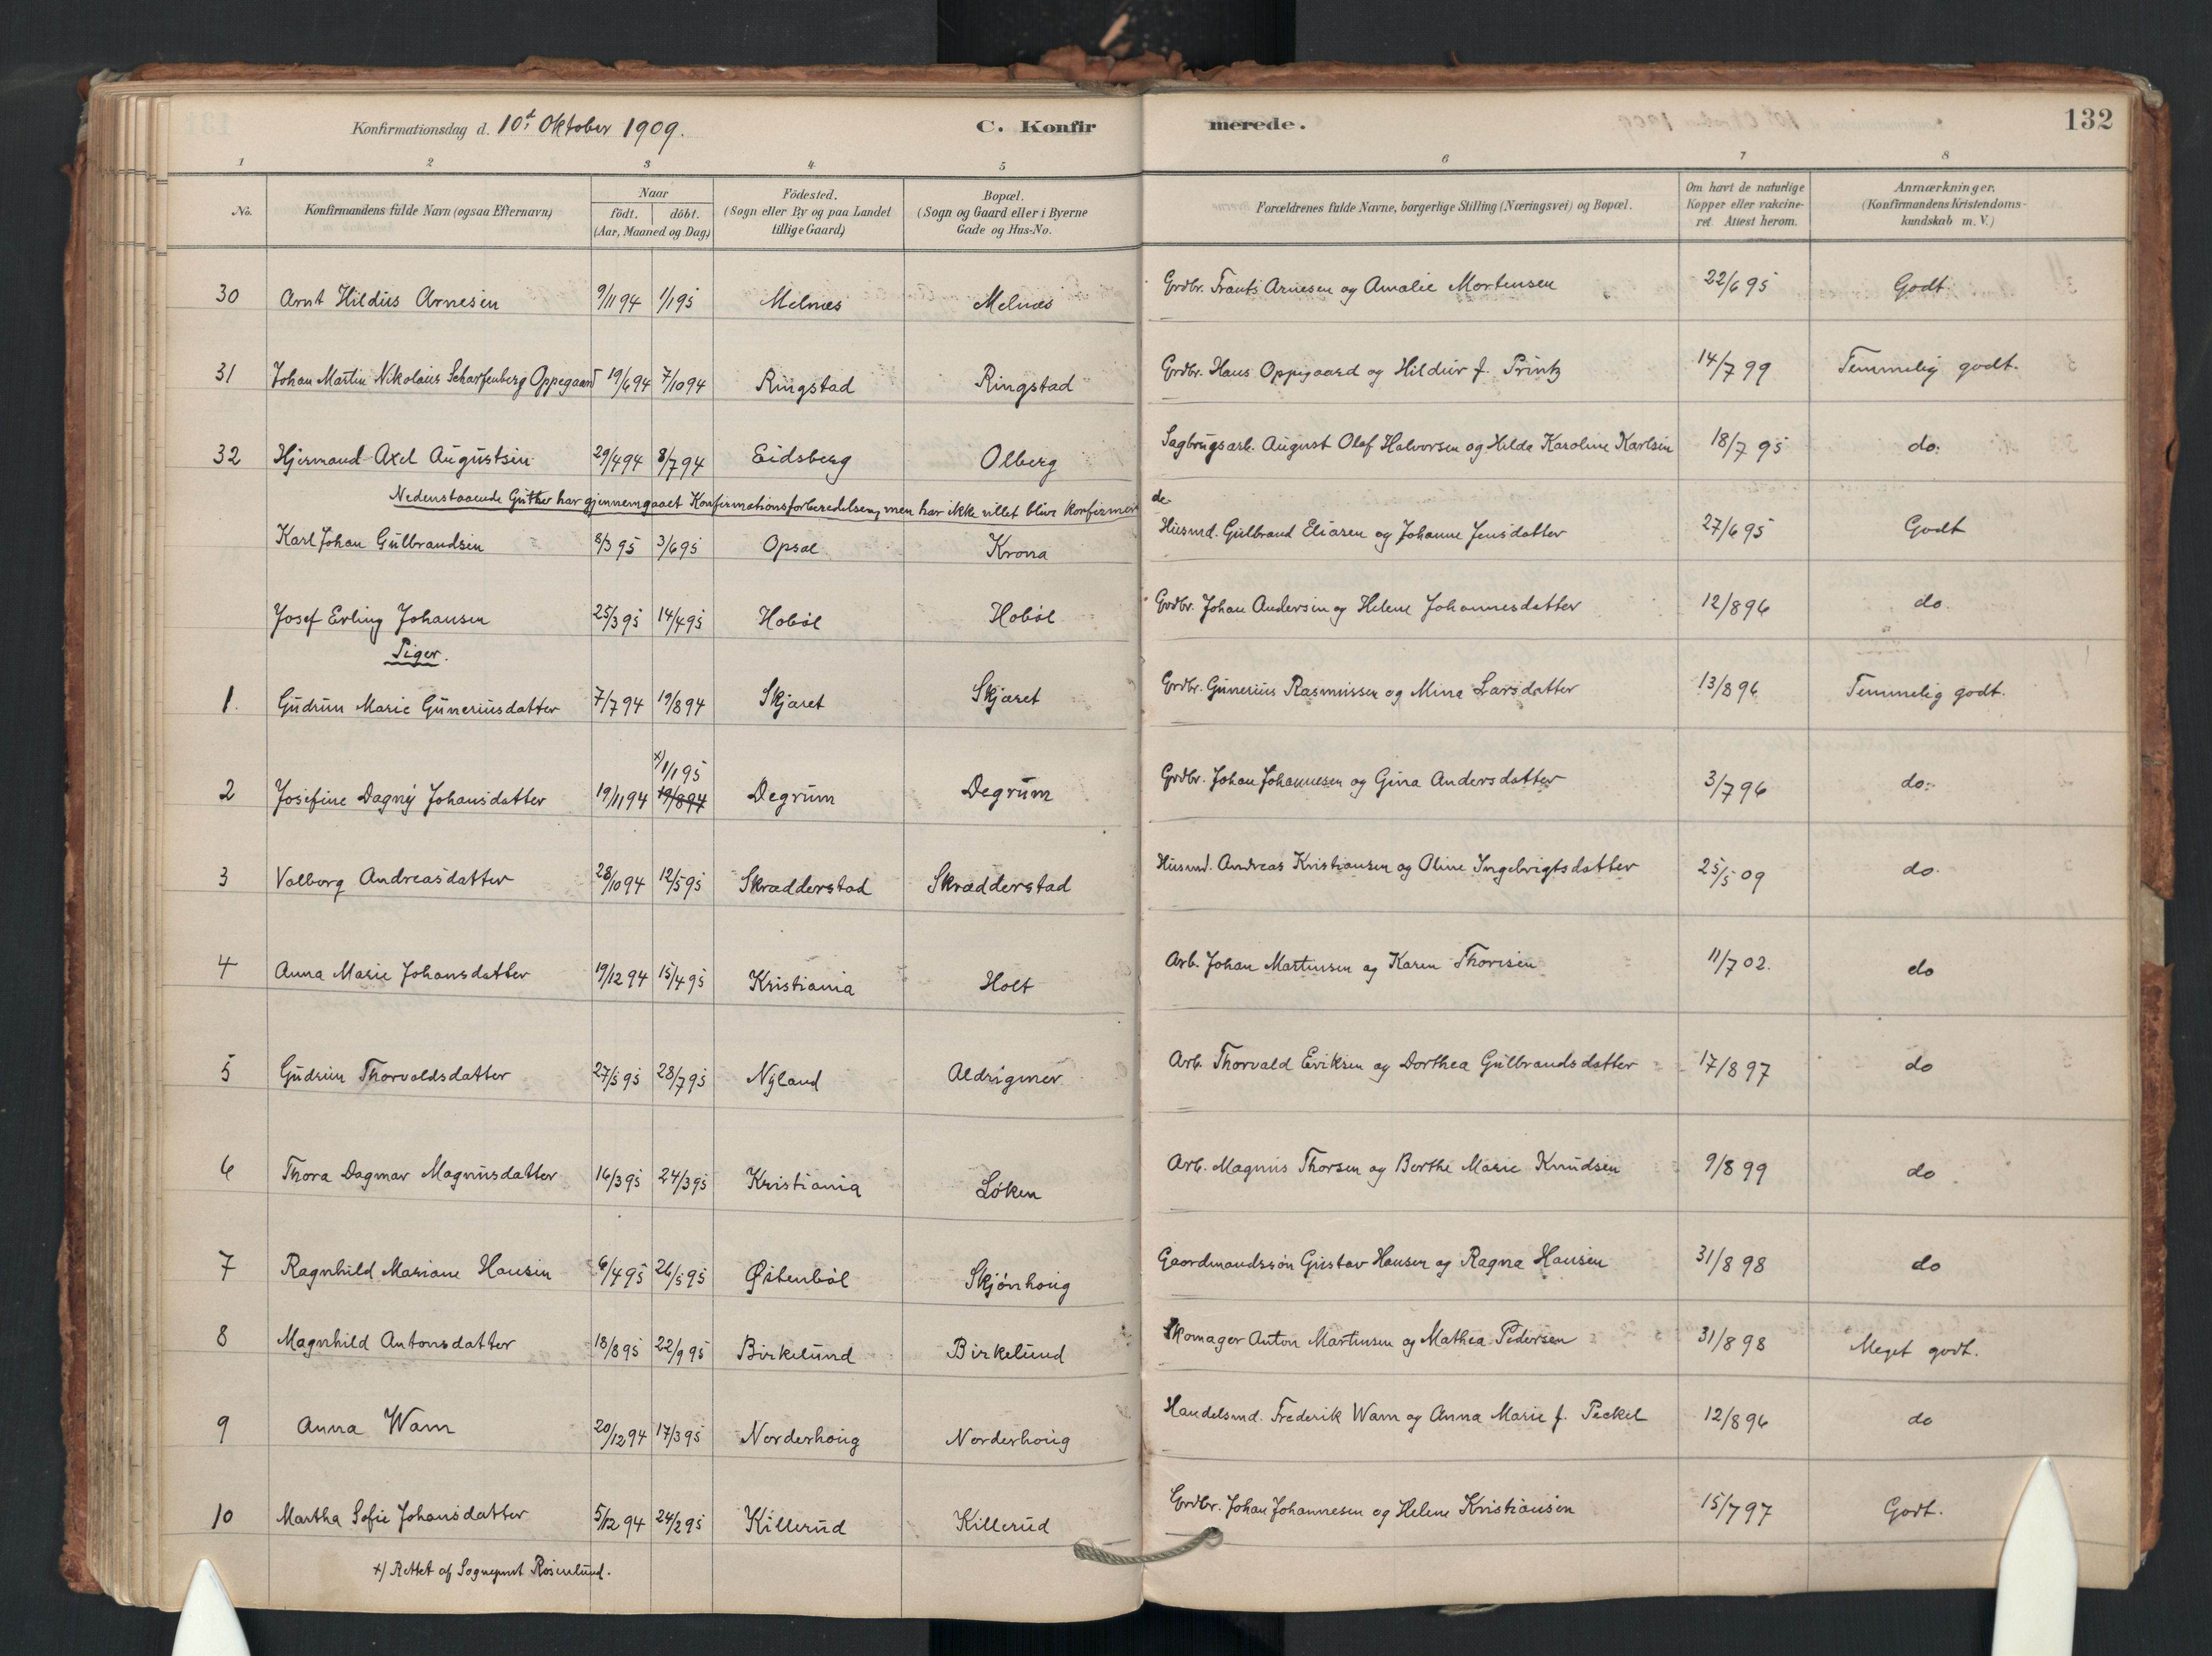 Konfirmationsdag d. 10de Oktober 1909. C. Konfirmerede. 132
1 2 3 4 5 6 7 8
No. Konfirmandens fulde Navn (ogsaa Efternavn) Naar födt. döbt. (Aar, Maaned og Dag) Födested. (Sogn eller By og paa Landet tillige Gaard) Bopæl. (Sogn og Gaard eller i Byerne Gade og Hus-No. Forældrenes fulde Navne, borgerlige Stilling (Næringsvei) og Bopæl. Om havt de naturlige Kopper eller vakcineret. Attest herom. Anmærkninger. (Konfirmandens Kristendomskundskab m. V.)
30 Arnt Hildius Arnesen 9/11 94 1/1 95 Melnæs Melnæs Grdbr. Frants Arnesen og Amalie Mortensen 22/6 95 Godt.
31 Johan Martin Nikolaus Scharfenberg Oppegaard 19/6 94 7/10 94 Ringstad Ringstad Grdbr. Hans Oppegaard og Hildur f. Printz 14/7 99 Temmelig godt.
32 Hjermand Axel Augustsen 29/4 94 8/7 94 Eidsberg Olberg Sagbrugsarb. August Olaf Halvorsen og Hilda Karoline Karlsen 18/7 95 do.
Nedenstaaende Gutter har gjennemgaaet Konfirmationsforberedelsen, men har ikke villet blive konfirmerede.
Karl Johan Gulbrandsen 8/3 95 3/6 95 Opsal Krona Husmd. Gulbrand Eliasen og Johanne Jensdatter 27/6 95 Godt
Josef Erling Johansen 25/3 95 14/4 95 Hoböl Hoböl Grdbr. Johan Andersen og Helene Johannesdatter 12/8 96 do.
Piger.
1. Gudrun Marie Guneriusdatter 7/7 94 19/8 94 Skjæret Skjæret Grdbr. Gunerius Rasmussen og Mina Larsdatter 13/8 96 Temmelig godt.
x) 1/1 95
2 Josefine Dagny Johansdatter 19/11 94 19/8 94 Degrum Degrum Grdbr. Johan Johannesen og Gina Andersdatter 3/7 96 do.
3 Valborg Andreasdatter 28/10 94 12/5 95 Skrædderstad Skrædderstad Husmd. Andreas Kristiansen og Oline Ingebrigtsdatter 25/5 09 do.
4 Anna Marie Johansdatter 19/12 94 15/4 95 Kristiania Holt Arb. Johan Martinsen og Karen Thorisen 11/7 02. do
5 Gudrun Thorvaldsdatter 27/5 95 28/7 95 Nyland Aldrigmer Arb. Thorvald Eriksen og Dorthea Gulbrandsdatter 17/8 97 do
6 Thora Dagmar Magnusdatter 16/3 95 24/3 95 Kristiania Löken Arb. Magnus Thorsen og Berthe Marie Knudsen 9/8 99 do.
7 Ragnhild Mariane Hansen 6/4 95 26/5 95 Østenböl Skjönhoug Gaardmandssön Gustav Hansen og Ragna Hansen 31/8 98 do
8 Magnhild Antonsdatter 18/8 95 22/9 95 Birkelund Birkelund Skomager Anton Martinsen og Mathea Pedersen 31/8 98 Meget godt.
9 Anna Wam 20/12 94 17/3 95 Norderhoug Norderhoug Handelsmd. Frederik Wam og Anna Marie f. Peckel 12/8 96 do
10 Martha Sofie Johansdatter 5/12 94 24/2 95 Killerud Killerud Grdbr. Johan Johannesen og Helene Kristiansen 15/7 97 Godt.
x) Rettet af Sogneprest Rosenlund.